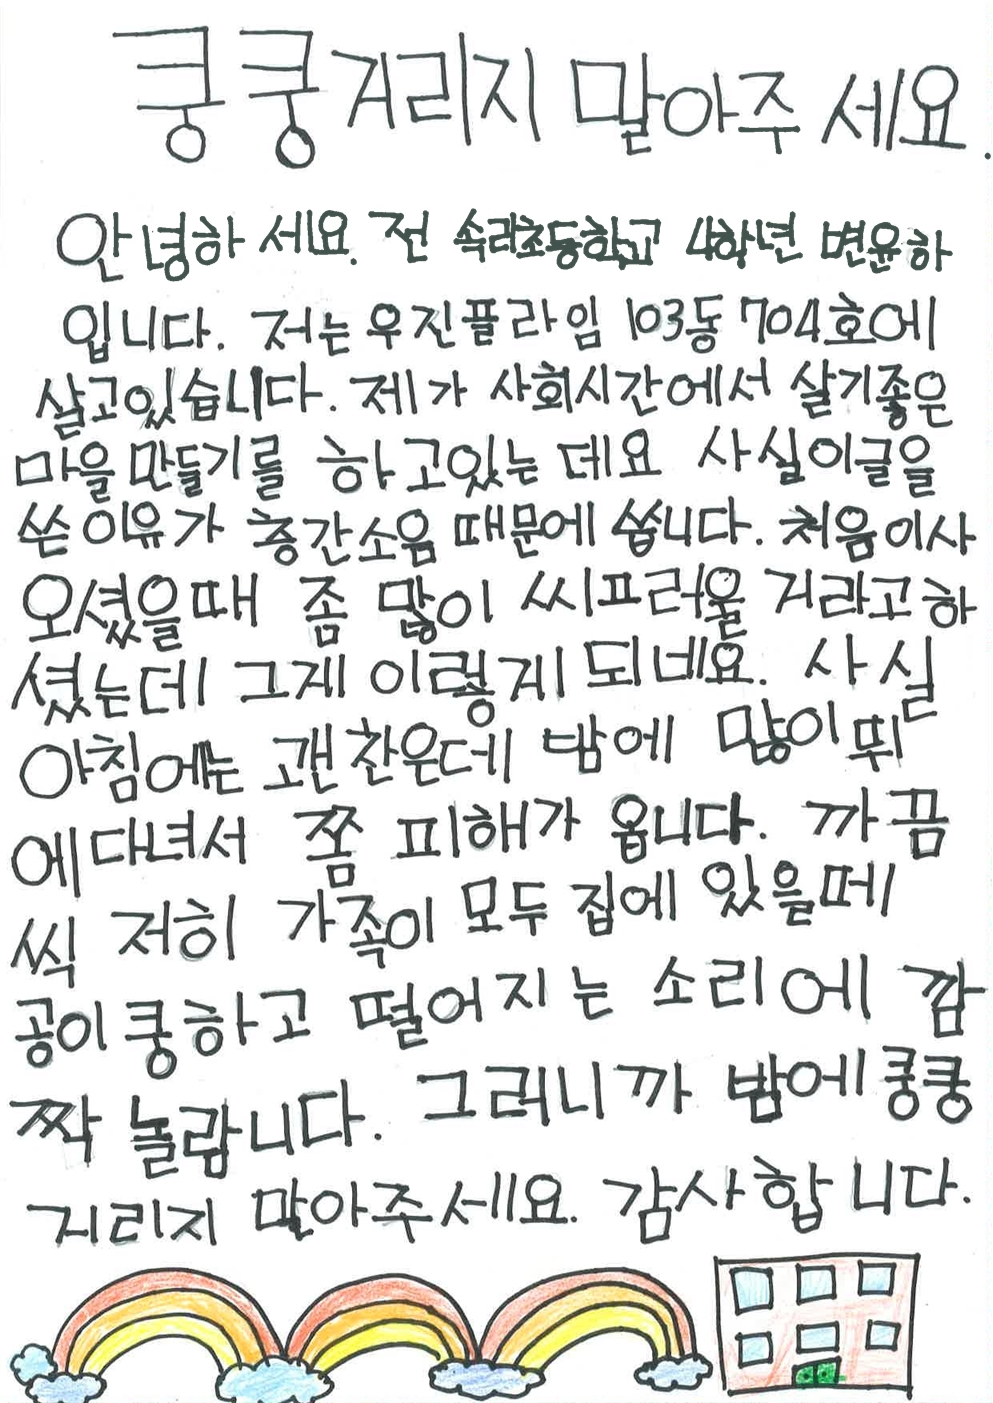 쿵쿵거리지 말아주세요.
안녕하세요. 전 속리초등학교 4학년 변윤하
입니다. 저는 우진플라임 103동 704호에
살고있습니다. 제가 사회시간에서 살기좋은
마을 만들기를 하고있는데요 사실이글을
쓴 이유가 층간소음 때문에 씁니다. 처음이사
오셨을때 좀 많이 씨끄러울 거라고하
셨는데 그게 이렇게 되네요. 사실
아침에는 괜찬은데 밤에 많이뛰
에다녀서 쫌 피해가 옵니다. 까끔
씩 저히 가족이 모두 집에 있을떼
공이 쿵하고 떨어지는 소리에 깜
짝 놀랍니다. 그러니까 밤에 쿵쿵
거리지 말아주세요. 감사합니다.